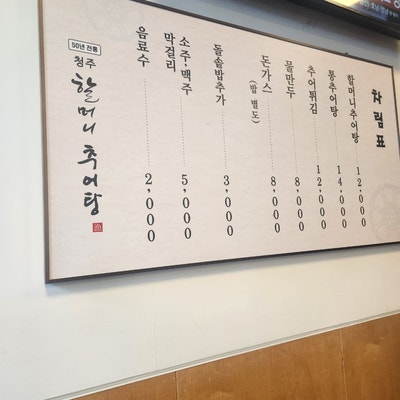 차림표
할머니추어탕 12,000
통추어탕 14,000
추어튀김 12,000
물만두 8,000
돈가스 (밥 별도) 8,000
돌솥밥추가 3,000
소주·맥주
막걸리 5,000
음료수 2,000
50년 전통
청주
할머니 추어탕